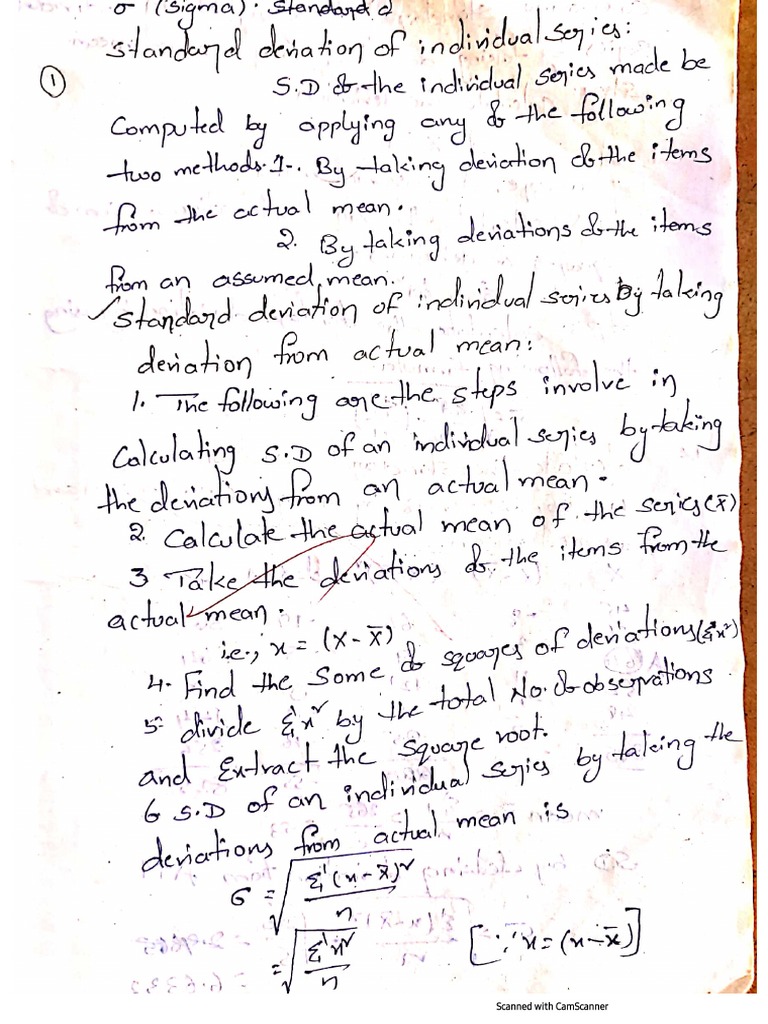 σ (sigma). Standard d
Standard deviation of individual series:
① S.D of the individual series made be
Computed by applying any of the following
two methods. 1-. By taking deviation of the items
from the actual mean.
2. By taking deviations of the items
from an assumed, mean.
Standard deviation of individual series By taking
deviation from actual mean:
1. The following are the steps involve in
Calculating S.D of an individual series by taking
the deviations from an actual mean.
2. Calculate the actual mean of the series (x̄)
3 Take the deviations of the items from the
actual mean.
i.e., x = (x - x̄)
4. Find the Some of squares of deviations (Σx²)
5- divide Σx² by the total No. of observations
and Extract the square root.
6 S.D of an individual series by taking the
deviations from actual mean is
σ = √Σ(x - x̄)²/n
= √Σx²/n [∵ x = (x - x̄)]
Scanned with CamScanner